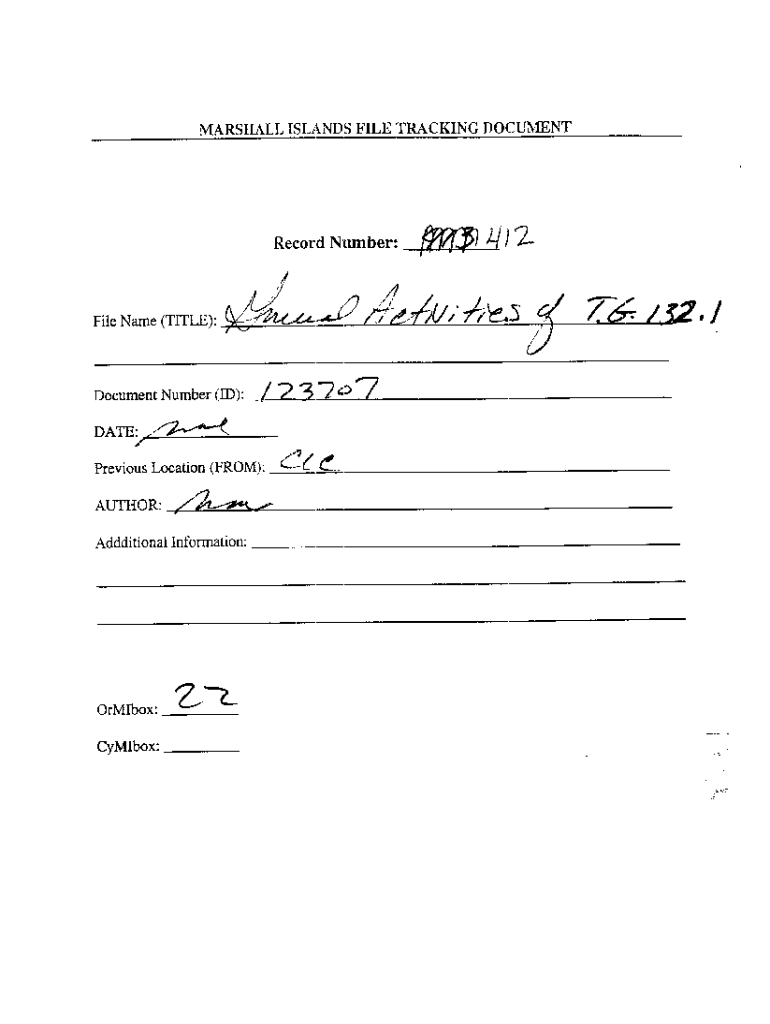 MARSHALL ISLANDS FILE TRACKING DOCUMENT
Record Number: 412
File Name (TITLE): General Activities of T.G. 132.1
Document Number (ID): 123707
DATE:
Previous Location (FROM): CIC
AUTHOR:
Addditional Information:
OrMIbox: 22
CyMIbox: